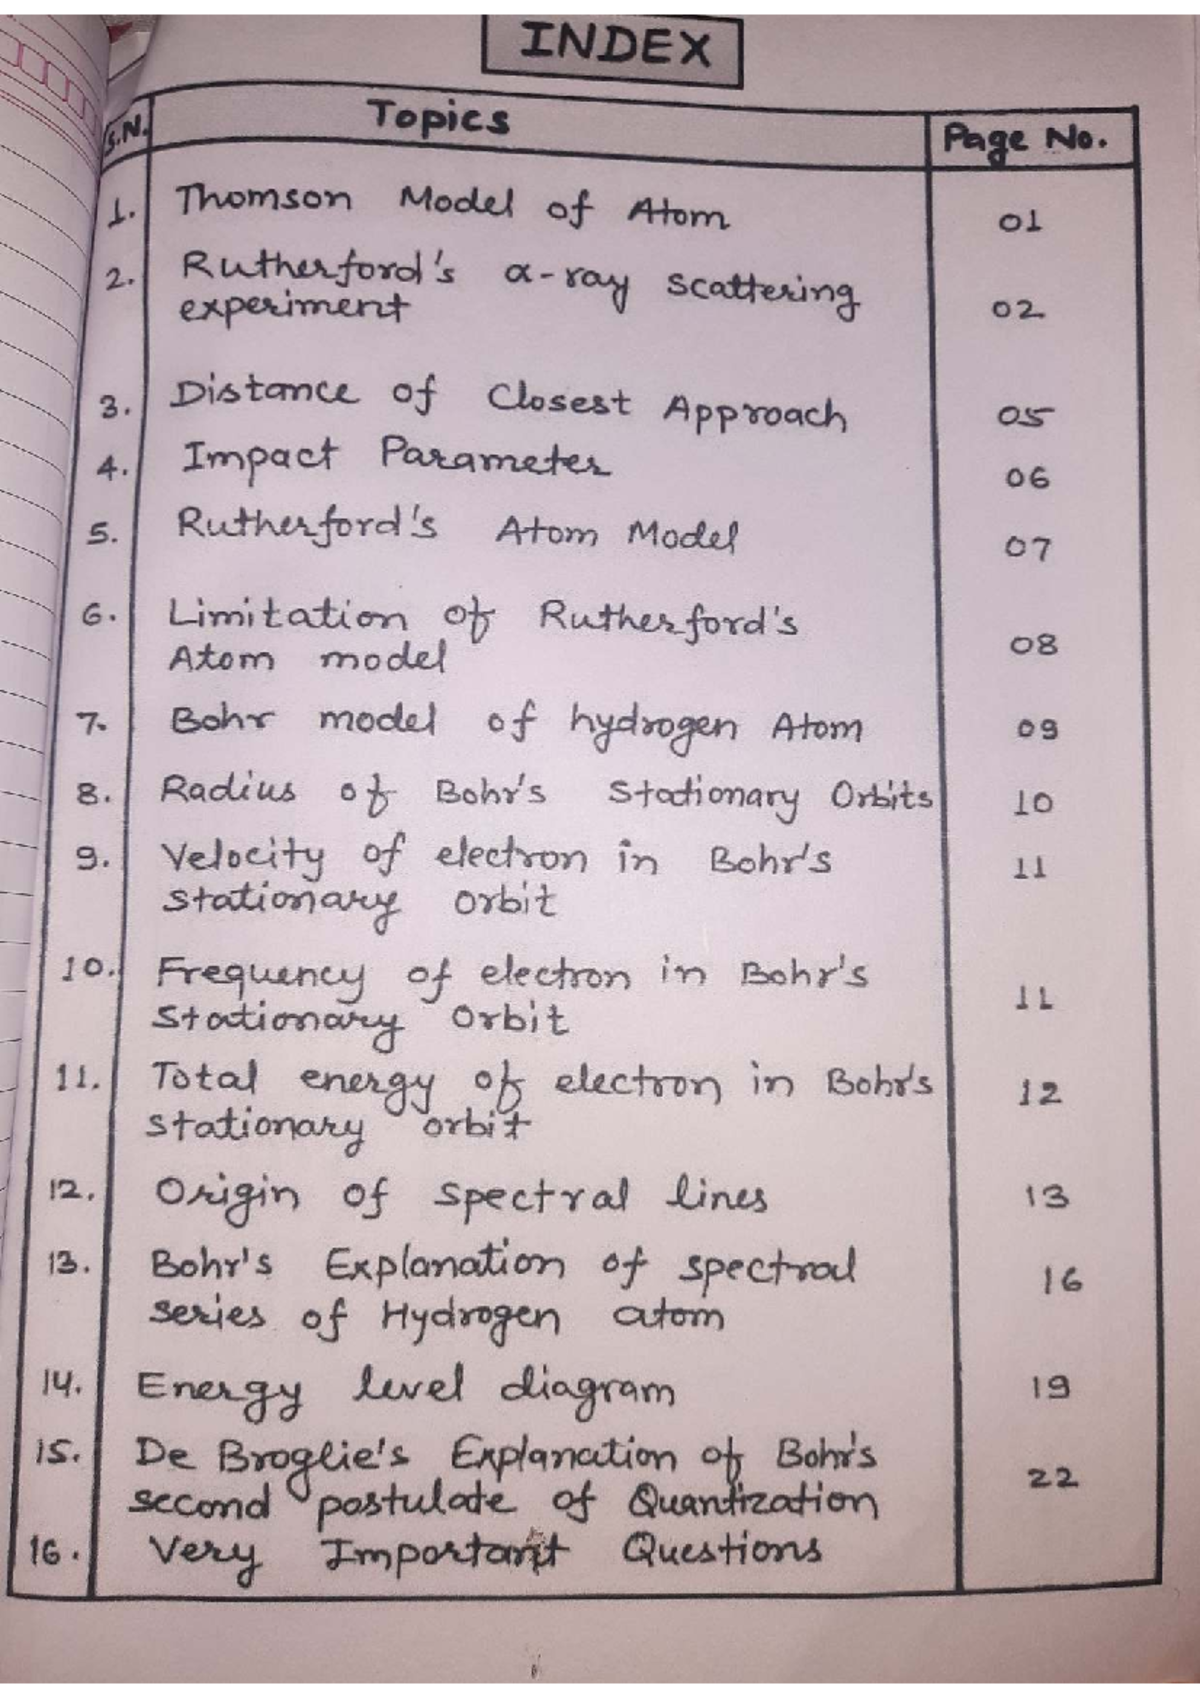 INDEX
S.N. Topics Page No.
1. Thomson Model of Atom 01
2. Rutherford's α-ray scattering
experiment 02
3. Distance of Closest Approach 05
4. Impact Parameter 06
5. Rutherford's Atom Model 07
6. Limitation of Rutherford's
Atom model 08
7. Bohr model of hydrogen Atom 09
8. Radius of Bohr's Stationary Orbits 10
9. Velocity of electron in Bohr's 11
stationary orbit
10. Frequency of electron in Bohr's
Stationary Orbit 11
11. Total energy of electron in Bohr's 12
stationary orbit
12. Origin of spectral lines 13
13. Bohr's Explanation of spectral 16
series of Hydrogen atom
14. Energy level diagram 19
15. De Broglie's Explanation of Bohr's 22
second postulate of Quantization
16. Very Important Questions